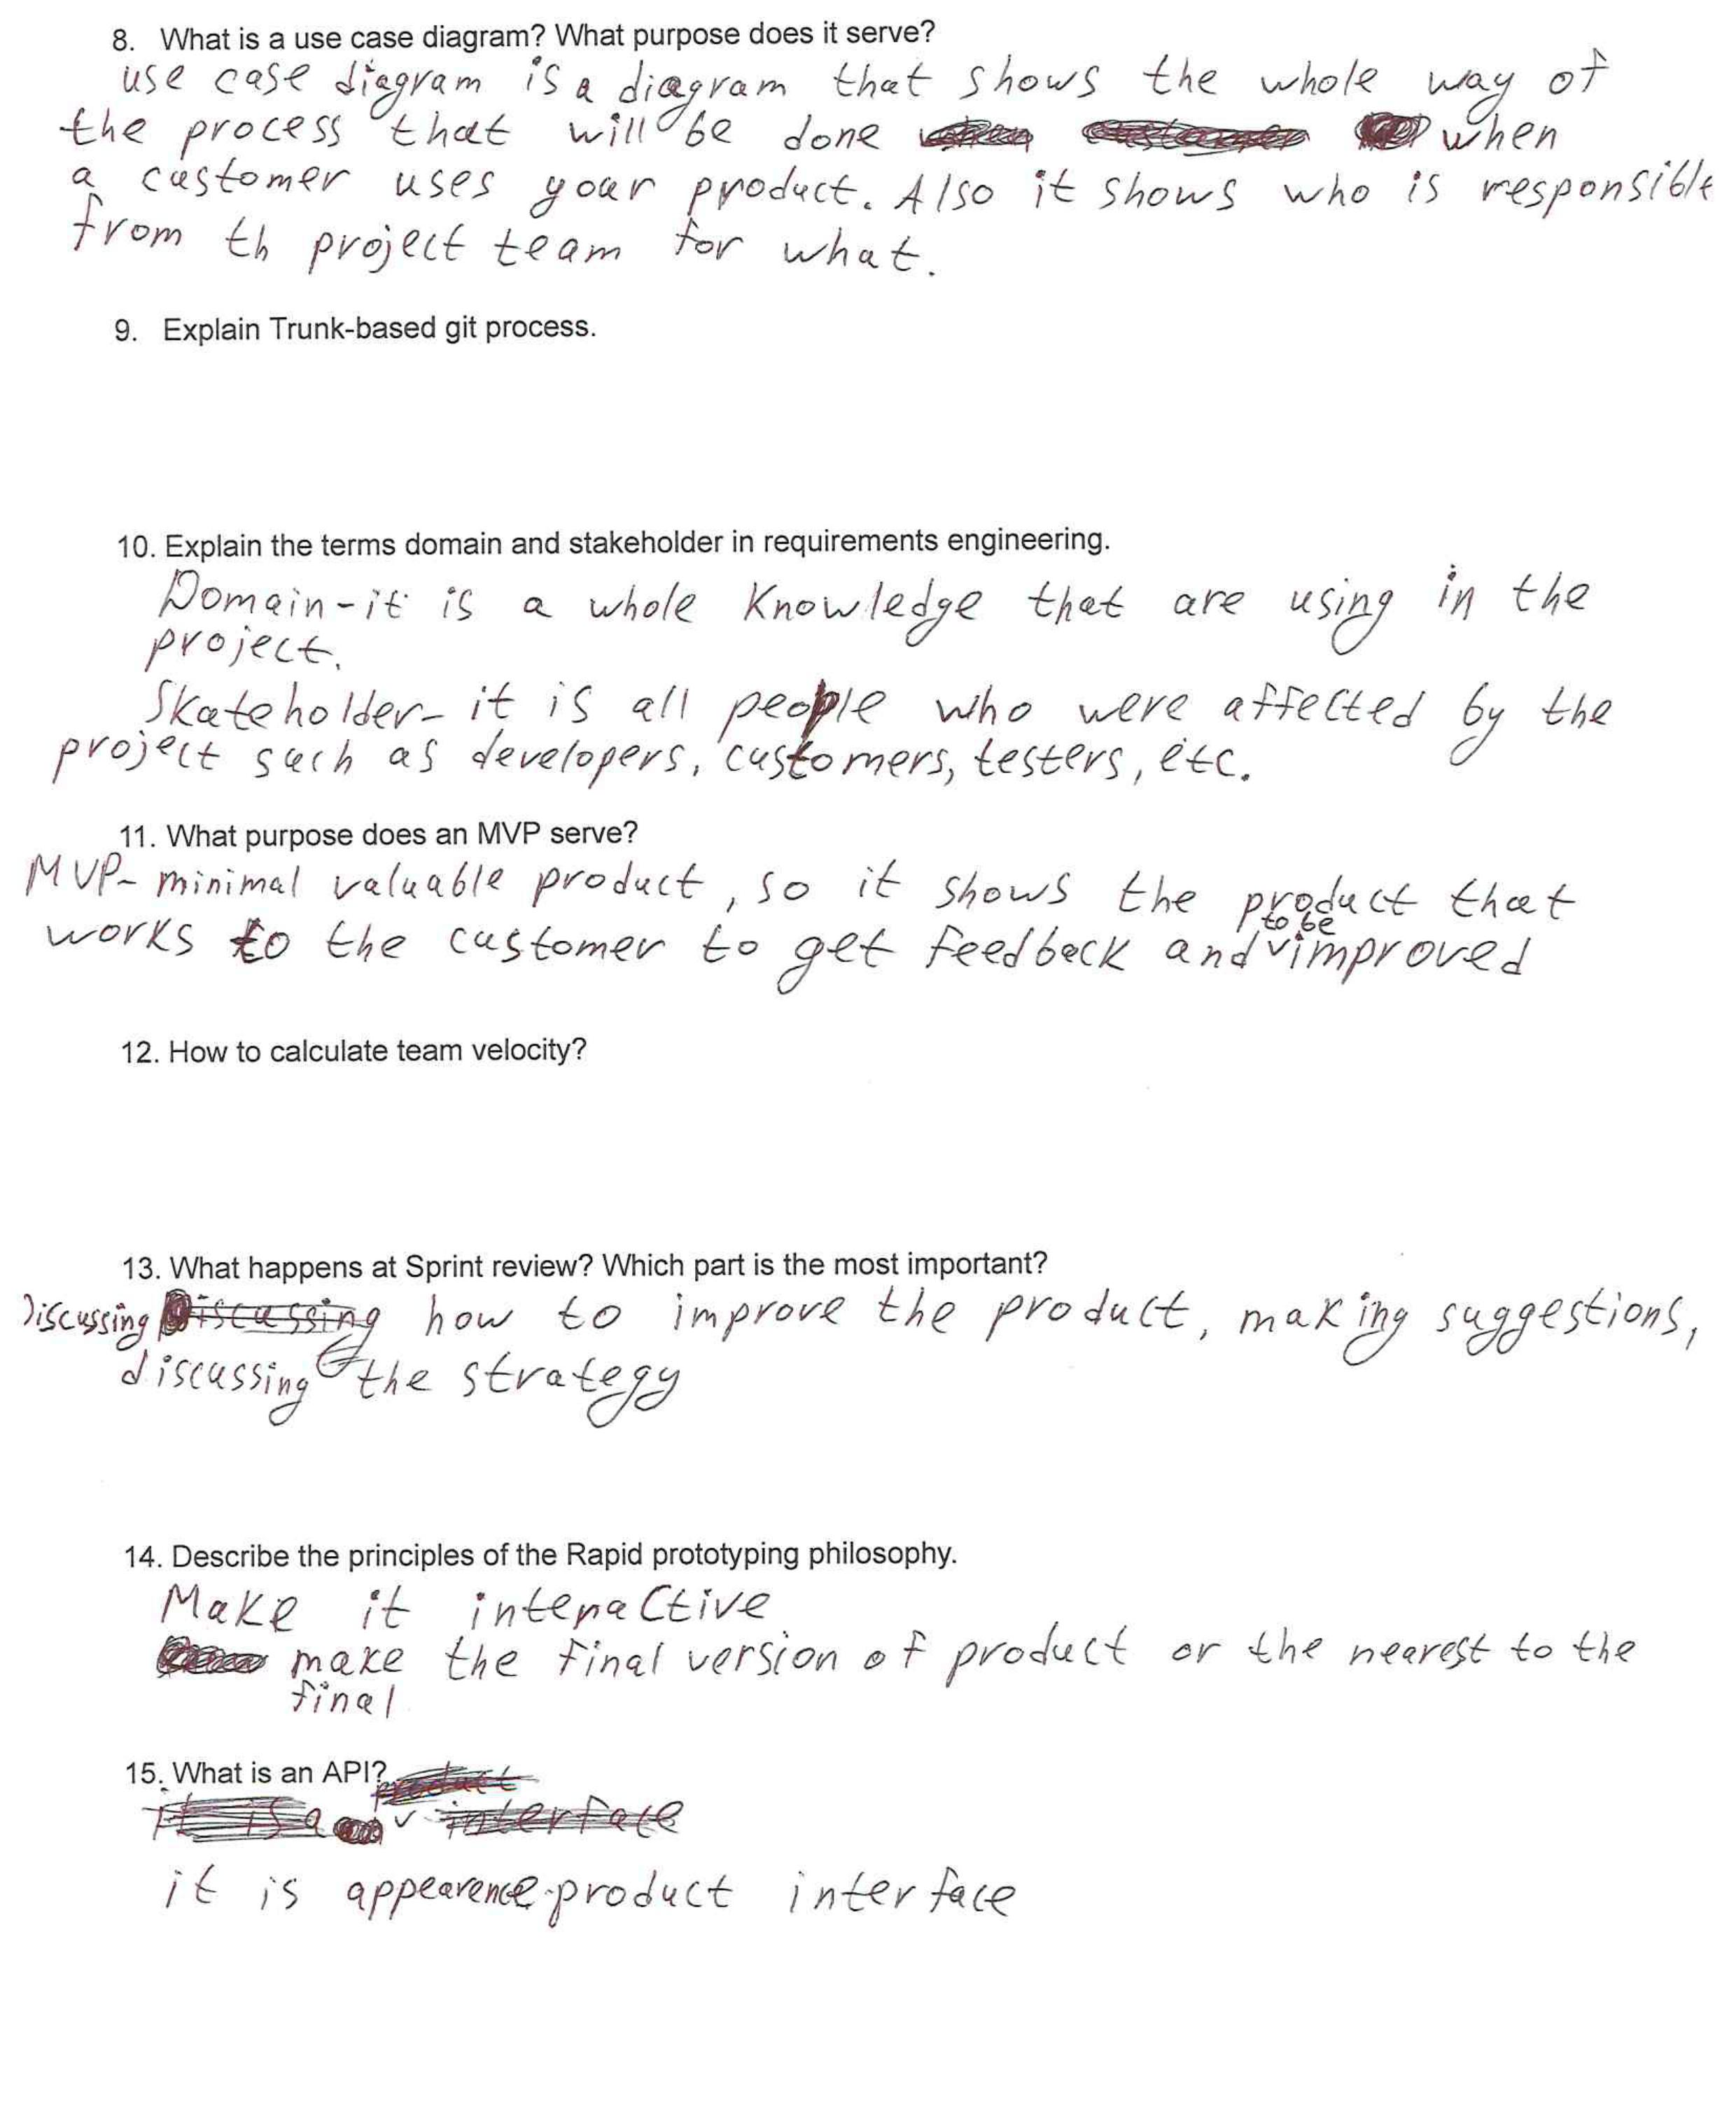 8. What is a use case diagram? What purpose does it serve?
use case diagram is a diagram that shows the whole way of
the process that will be done when
a customer uses your product. Also it shows who is responsible
from th project team for what.
9. Explain Trunk-based git process.
10. Explain the terms domain and stakeholder in requirements engineering.
Domain - it is a whole knowledge that are using in the
project.
Skateholder - it is all people who were affected by the
project such as developers, customers, testers, etc.
11. What purpose does an MVP serve?
MVP - minimal valuable product, so it shows the product that
to be
works to the customer to get feedback and improved
12. How to calculate team velocity?
13. What happens at Sprint review? Which part is the most important?
Discussing how to improve the product, making suggestions,
discussing the strategy
14. Describe the principles of the Rapid prototyping philosophy.
Make it interactive
make the final version of product or the nearest to the
final
15. What is an API?
it is appearence product interface